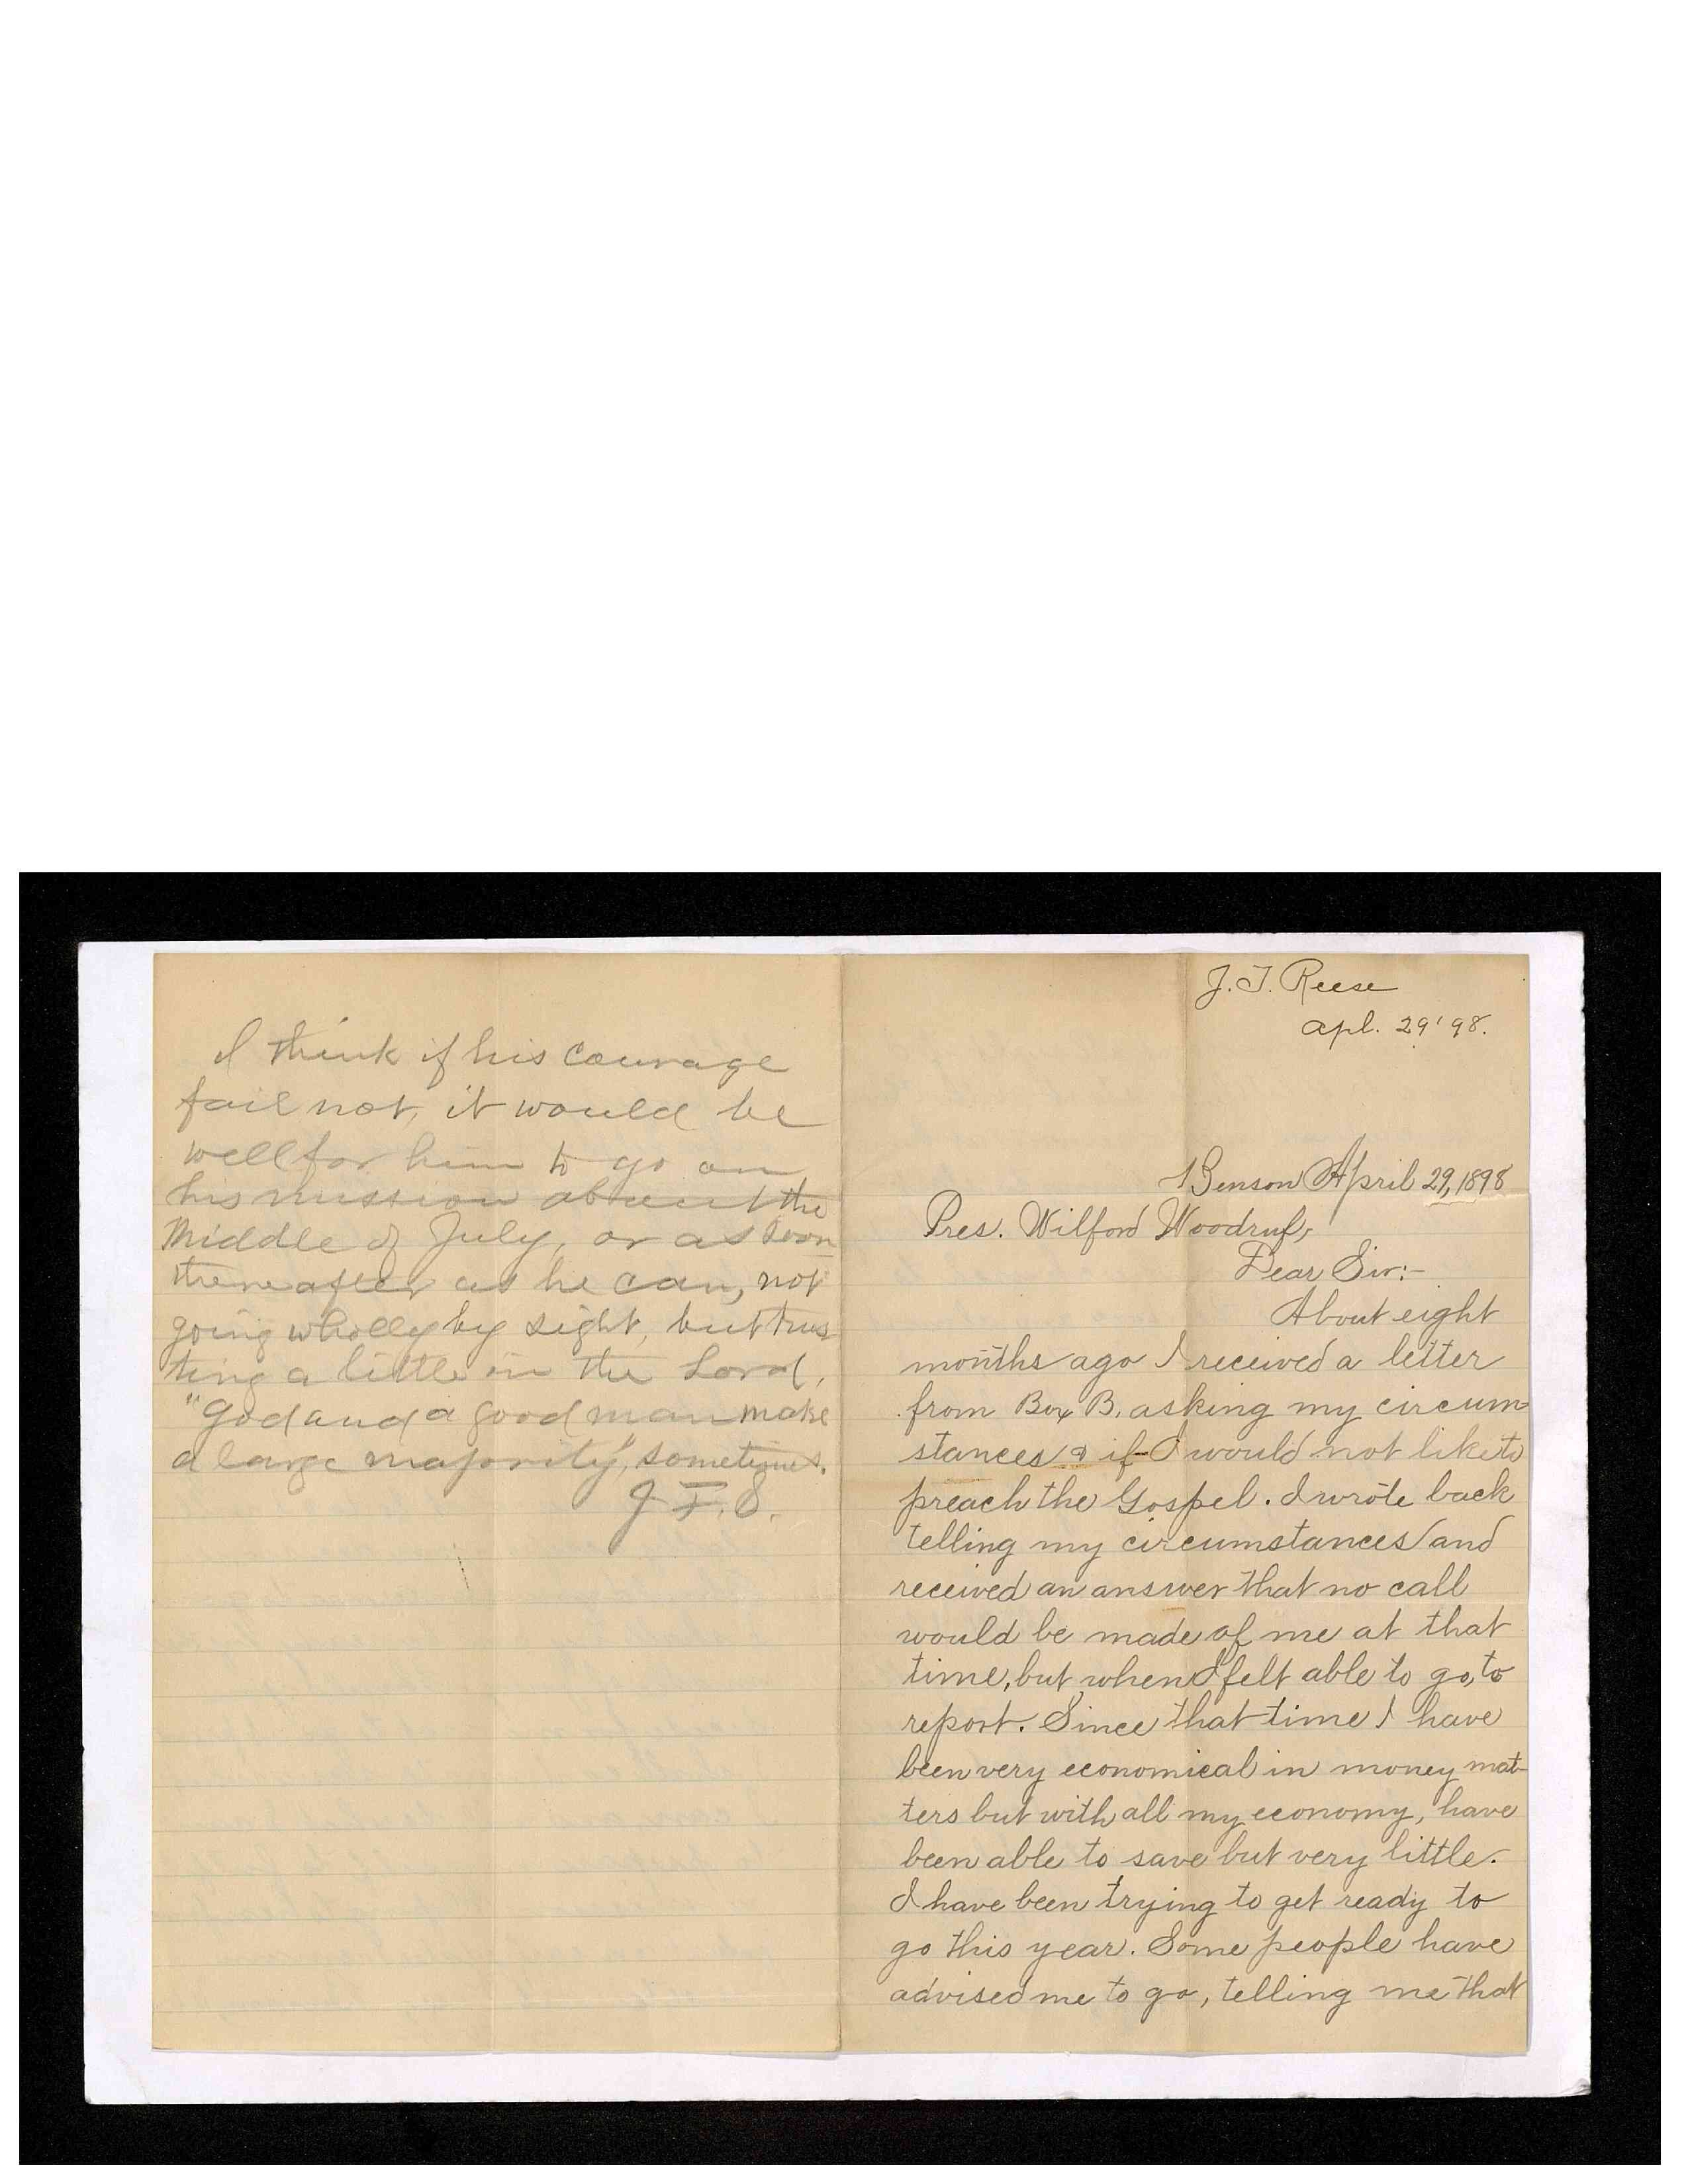 I think if his courage
fail not, it would be
well for him to go on
his mission about the
Middle of July, or as soon
thereafter as he can, not
going wholly by sight, but trus
ting a little in the Lord.
"God and a good man make
a large majority", sometimes.
J. F. S.
J. T. Reese
Apl. 29 '98.
Benson April 29, 1898
Pres. Wilford Woodruf,
Dear Sir:-
About eight
months ago I received a letter
from Box B. asking my circum-
stances & if I would not like to
preach the Gospel. I wrote back
telling my circumstances and
received an answer that no call
would be made of me at that
time, but when I felt able to go, to
report. Since that time I have
been very economical in money mat-
ters but with all my economy, have
been able to save but very little.
I have been trying to get ready to
go this year. Some people have
advised me to go, telling me that